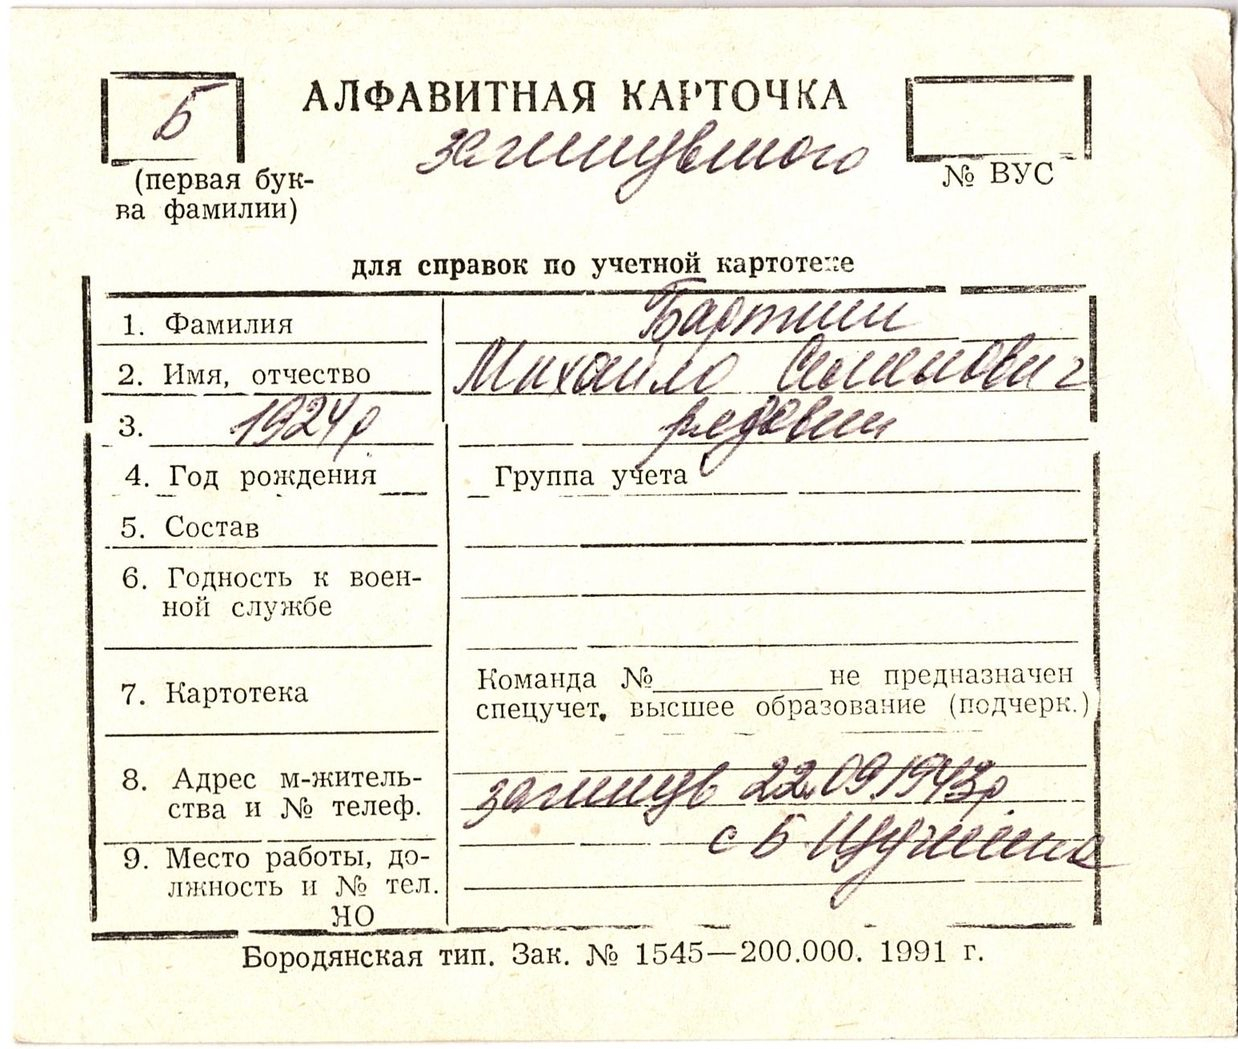 Б
АЛФАВИТНАЯ КАРТОЧКА
загинувшого
(первая бук-
ва фамилии)
№ ВУС
для справок по учетной картотеке
1. Фамилия
2. Имя, отчество Михайло Семенович
3. 1924р рядовий
4. Год рождения Группа учета
5. Состав
6. Годность к воен-
ной службе
7. Картотека
Команда № не предназначен
спецучет, высшее образование (подчерк.)
8. Адрес м-житель-
ства и № телеф.
загинув 22.09.1943р
с Б
9. Место работы, до-
лжность и № тел.
НО
Бородянская тип. Зак. № 1545—200.000. 1991 г.